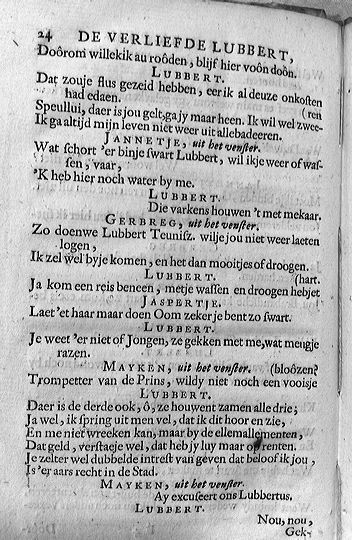 24 DE VERLIEFDE LUBBERT,
Doôrom willekik au roôden, blijf hier voôn doôn.
LUBBERT.
Dat zouje flus gezeid hebben, eer ik al deuze onkosten
had edaen. (ren
Speullui, daer is jou gelt, ga jy maar heen. Ik wil wel zwee-
Ik ga altijd mijn leven niet weer uit allebadeeren.
JANNETJE, uit het venster.
Wat schort 'er binje swart Lubbert, wil ikje weer of was-
sen, vaar,
'K heb hier noch water by me.
LUBBERT.
Die varkens houwen 't met mekaar.
GERBREG, uit het venster.
Zo doenwe Lubbert Teunisz. wilje jou niet weer laeten
logen,
Ik zel wel byje komen, en het dan mooitjes of droogen.
LUBBERT. (hart.
Ja kom een reis beneen, metje wassen en droogen hebjet
JASPERTJE.
Laet'et haar maar doen Oom zeker je bent zo swart.
LUBBERT.
Je weet 'er niet of Jongen, ze gekken met me, wat meugje
razen.
MAYKEN, uit het venster. (bloôzen?
Trompetter van de Prins, wildy niet noch een vooisje
LUBBERT.
Daer is de derde ook, ô, ze houwent zamen alle drie;
Ja wel, ik spring uit men vel, dat ik dit hoor en zie,
En me niet wreeken kan, maar by de ellemallementen,
Dat geld, verstaeje wel, dat heb jy luy maar op renten.
Je zelter wel dubbelde intrest van geven dat beloof ik jou,
Is 'er aars recht in de Stad.
MAYKEN, uit het venster.
Ay excuseert ons Lubbertus.
LUBBERT.
Nou, nou,
Gek-